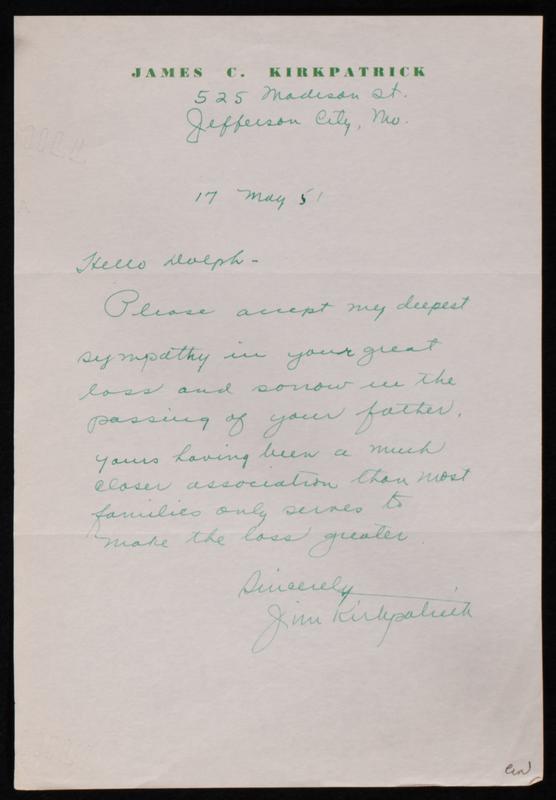 JAMES C. KIRKPATRICK
525 Madison St.
Jefferson City, Mo.
17 May 51
Hello Dolph-
Please accept my deepest
sympathy in your great
loss and sorrow in the
passing of your father.
Yours having been a much
closer association than most
families only serves to
make the loss greater.
Sincerely
Jim Kirkpatrick